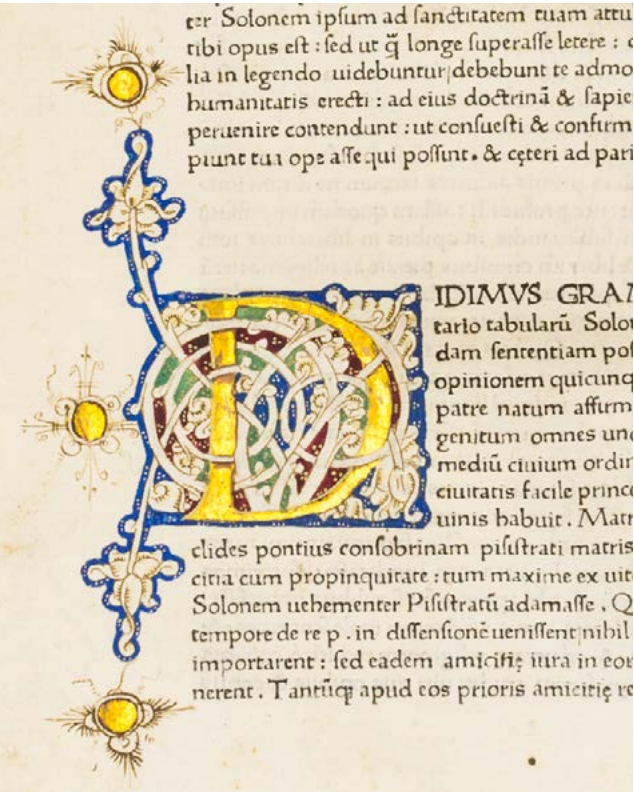 ter Solonem ipſum ad ſanctitatem tuam attu
tibi opus eſt : ſed ut q̃ longe ſuperaſſe letere : c
lia in legendo uidebuntur debebunt te admo
humanitatis erecti : ad eius doctrinā & ſapie
peruenire contendunt : ut conſueſti & confirm
piunt tua ope aſſequi poſſunt. & cęteri ad pari
DIDIMVS GRAM
tario tabularū Solon
dam ſententiam poſ
opinionem quicunq
patre natum affirm
genitum omnes uno
mediū ciuium ordin
ciuitatis facile princ
uinis habuit. Matr
clides pontius conſobrinam piſiſtrati matris
citia cum propinquitate : tum maxime ex uit
Solonem uehementer Piſiſtratū adamaſſe. Q
tempore de re p. in diſſenſionē ueniſſent nihil
importarent : ſed eadem amicitię iura in eor
nerent. Tantūq apud eos prioris amicitię re